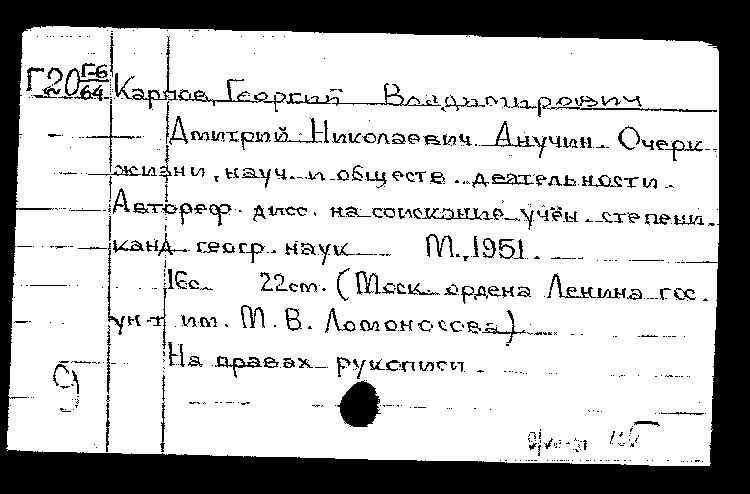 Г20 Г-6/64 Карпов, Георгий Владимирович
Дмитрий Николаевич Анучин. Очерк
жизни, науч. и обществ. деятельности.
Автореф. дисс. на соискание учён. степени
канд. геогр. наук М., 1951.
16с. 22см. (Моск. ордена Ленина гос.
ун-т им. М. В. Ломоносова)
На правах рукописи.
9